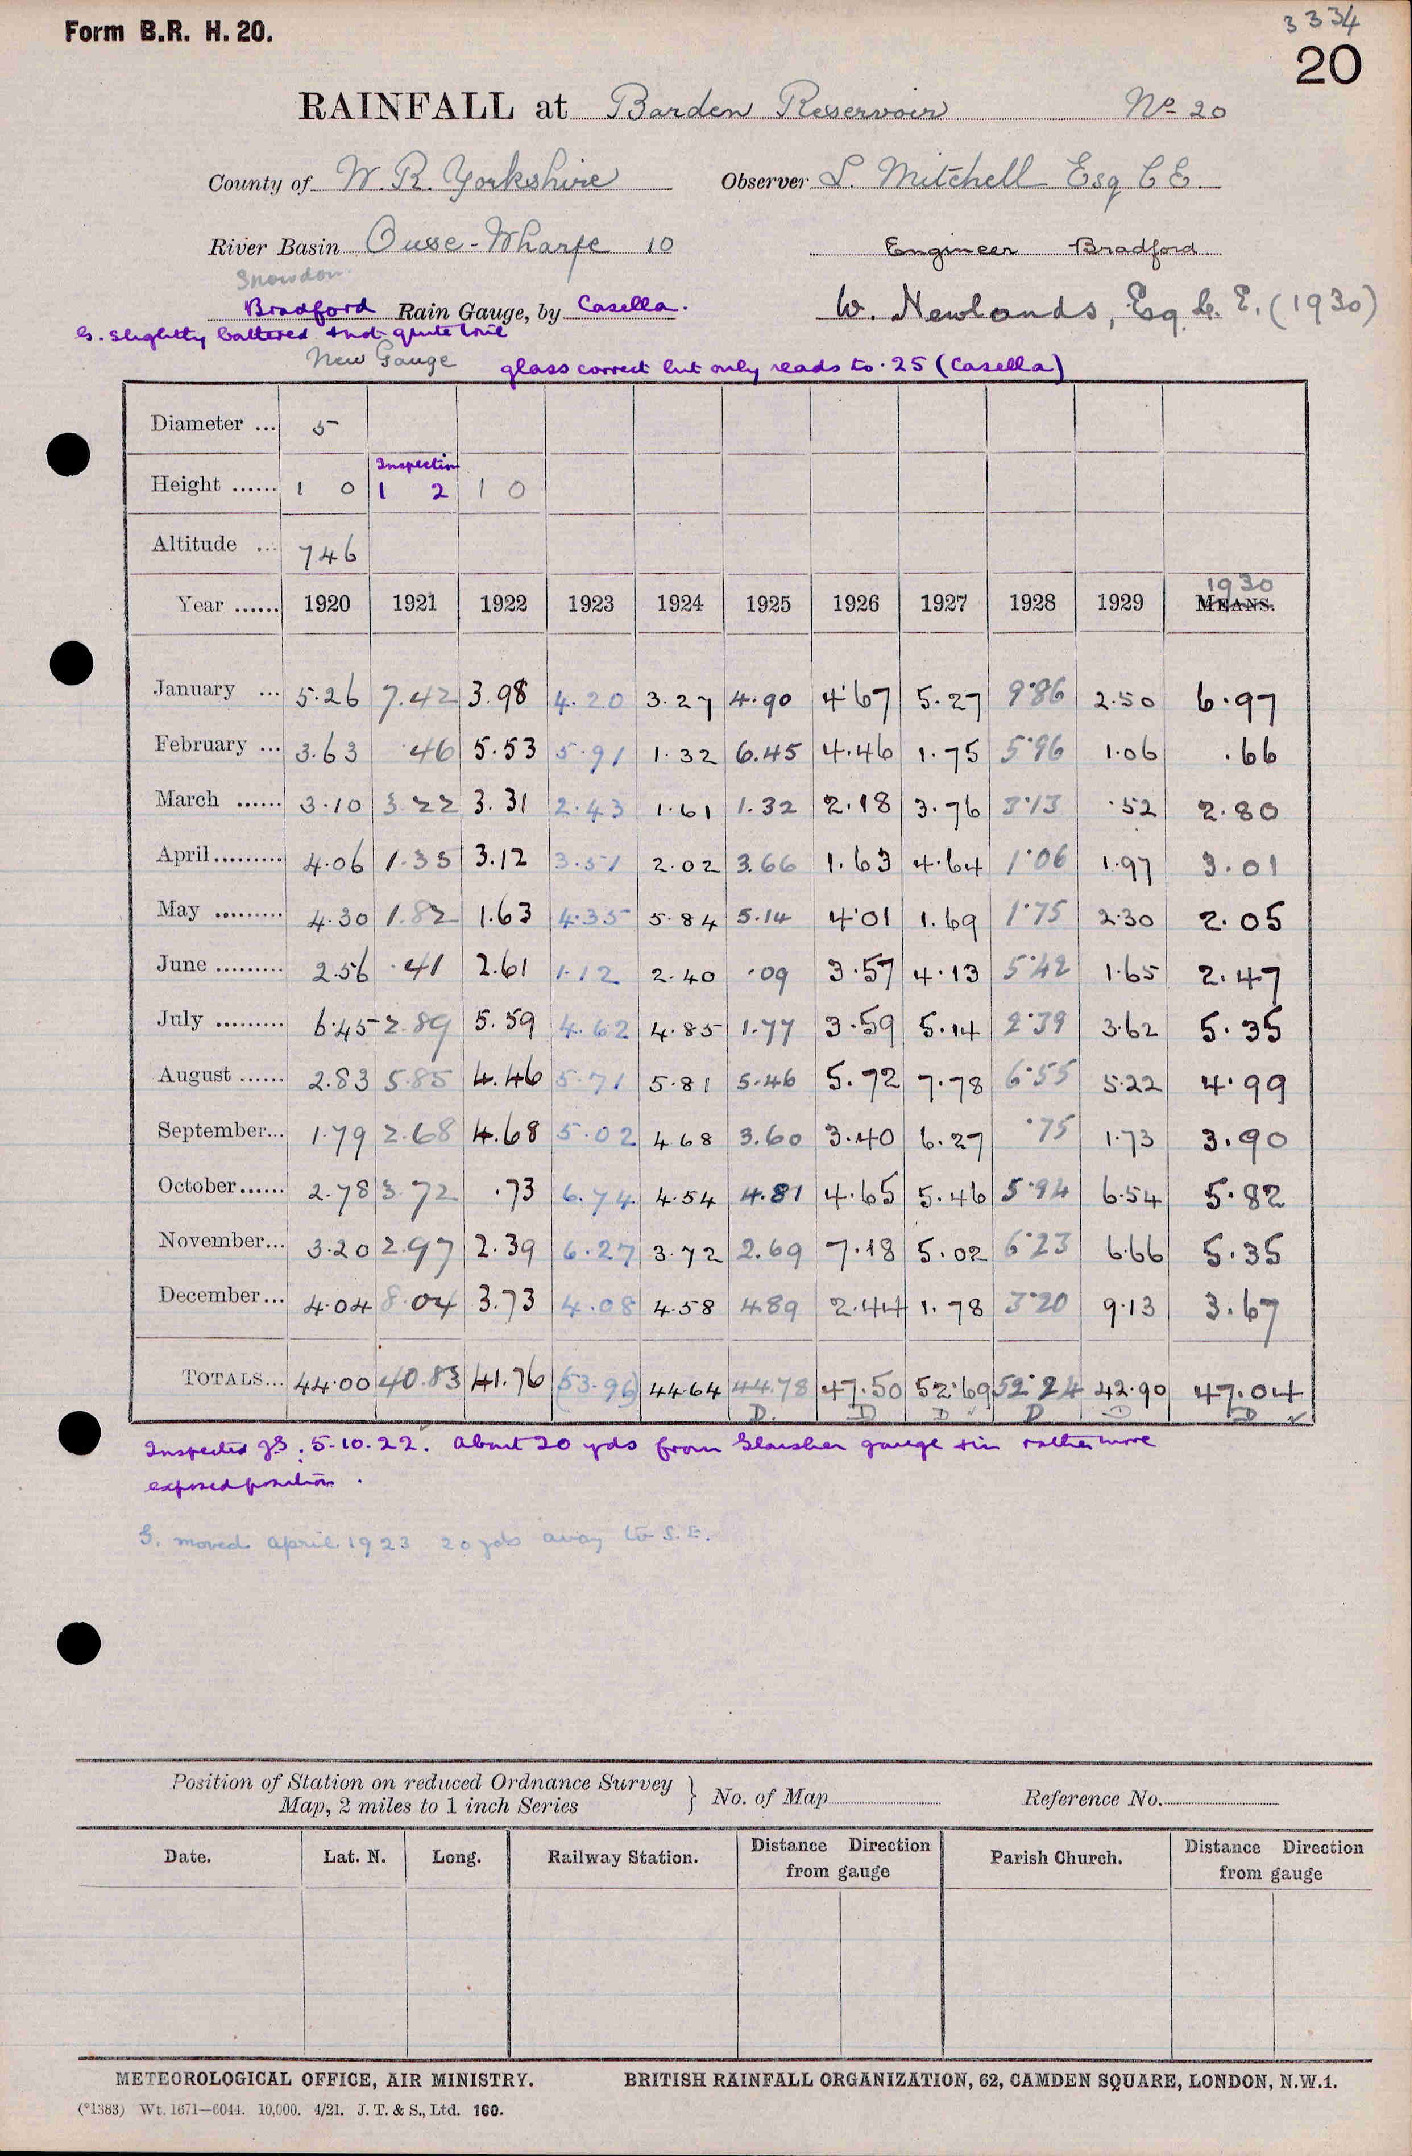 Form B.R. H. 20.
3334
20
RAINFALL at Barden Reservoir No 20
County of W. R. Yorkshire Observer L. Mitchell Esq C E.
River Basin Ouse - Wharfe 10 Engineer Bradford
Snowdon
Bradford Rain Gauge, by Casella. W. Newlands, Esq. C. E. (1930)
G. slightly battered & not quite true
New Gauge glass correct but only reads to .25 (Casella)
Diameter ... 5
Inspection
Height ...... 1 0 1 2 1 0
Altitude ... 746
1930
Year ...... 1920 1921 1922 1923 1924 1925 1926 1927 1928 1929 MEANS.
January ... 5.26 7.42 3.98 4.20 3.27 4.90 4.67 5.27 9.86 2.50 6.97
February ... 3.63 .46 5.53 5.91 1.32 6.45 4.46 1.75 5.96 1.06 .66
March ...... 3.10 3.22 3.31 2.43 1.61 1.32 2.18 3.76 3.13 .52 2.80
April......... 4.06 1.35 3.12 3.51 2.02 3.66 1.63 4.64 1.06 1.97 3.01
May ......... 4.30 1.82 1.63 4.35 5.84 5.14 4.01 1.69 1.75 2.30 2.05
June ......... 2.56 .41 2.61 1.12 2.40 .09 3.57 4.13 5.42 1.65 2.47
July ......... 6.45 2.89 5.59 4.62 4.85 1.77 3.59 5.14 2.39 3.62 5.35
August ...... 2.83 5.85 4.46 5.71 5.81 5.46 5.72 7.78 6.55 5.22 4.99
September... 1.79 2.68 4.68 5.02 4.68 3.60 3.40 6.27 .75 1.73 3.90
October...... 2.78 3.72 .73 6.74 4.54 4.81 4.65 5.46 5.94 6.54 5.82
November... 3.20 2.97 2.39 6.27 3.72 2.69 7.18 5.02 6.23 6.66 5.35
December... 4.04 8.04 3.73 4.08 4.58 4.89 2.44 1.78 3.20 9.13 3.67
TOTALS... 44.00 40.83 41.76 (53.96) 44.64 44.78 47.50 52.69 52.24 42.90 47.04
D. D D D D D ✓
Inspected JS. 5.10.22. About 20 yds from Glaisher gauge & in rather more
exposed position.
G. moved april 1923 20 yds away to S.E.
Position of Station on reduced Ordnance Survey
Map, 2 miles to 1 inch Series } No. of Map Reference No.
Date. Lat. N. Long. Railway Station. Distance Direction from gauge Parish Church. Distance Direction from gauge
METEOROLOGICAL OFFICE, AIR MINISTRY. BRITISH RAINFALL ORGANIZATION, 62, CAMDEN SQUARE, LONDON, N.W.1.
(*1383) Wt. 1671—6044. 10,000. 4/21. J. T. & S., Ltd. 160.